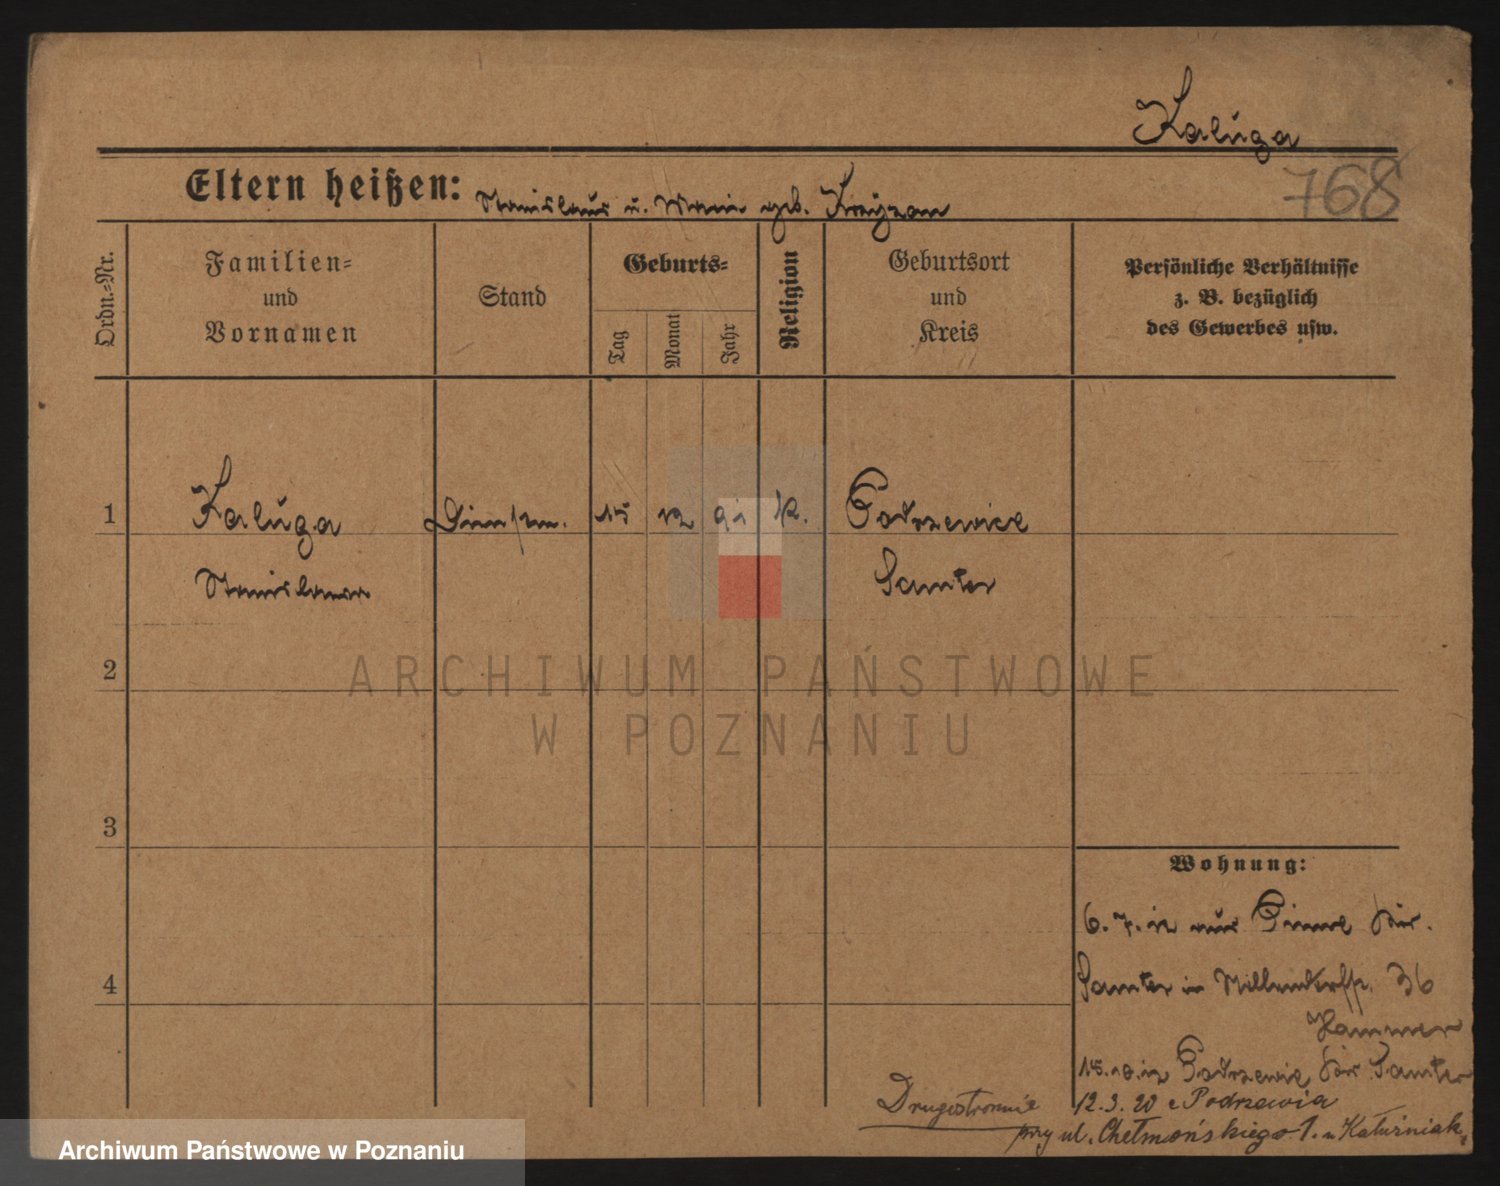 Kaluga
768
Eltern heißen: Stanislaus u. Marie geb.
Ordn.-Nr.
Familien-
und
Vornamen
Stand
Geburts-
Tag
Monat
Jahr
Religion
Geburtsort
und
Kreis
Persönliche Verhältnisse
z. B. bezüglich
des Gewerbes usw.
1 Kaluga 15 12 91 k. Podrzewice
Stanislaus Samter
ARCHIWUM PAŃSTWOWE
2
W POZNANIU
3
Wohnung:
6. 7. 12 aus Pinne Kr.
4 Samter in 36
Hammer
15. 10. 12 Podrzewie Kr. Samter
Drugostronnie 12. 3. 20 z Podrzewia
przy ul. Chełmońskiego 1. u Kałużniak
Archiwum Państwowe w Poznaniu